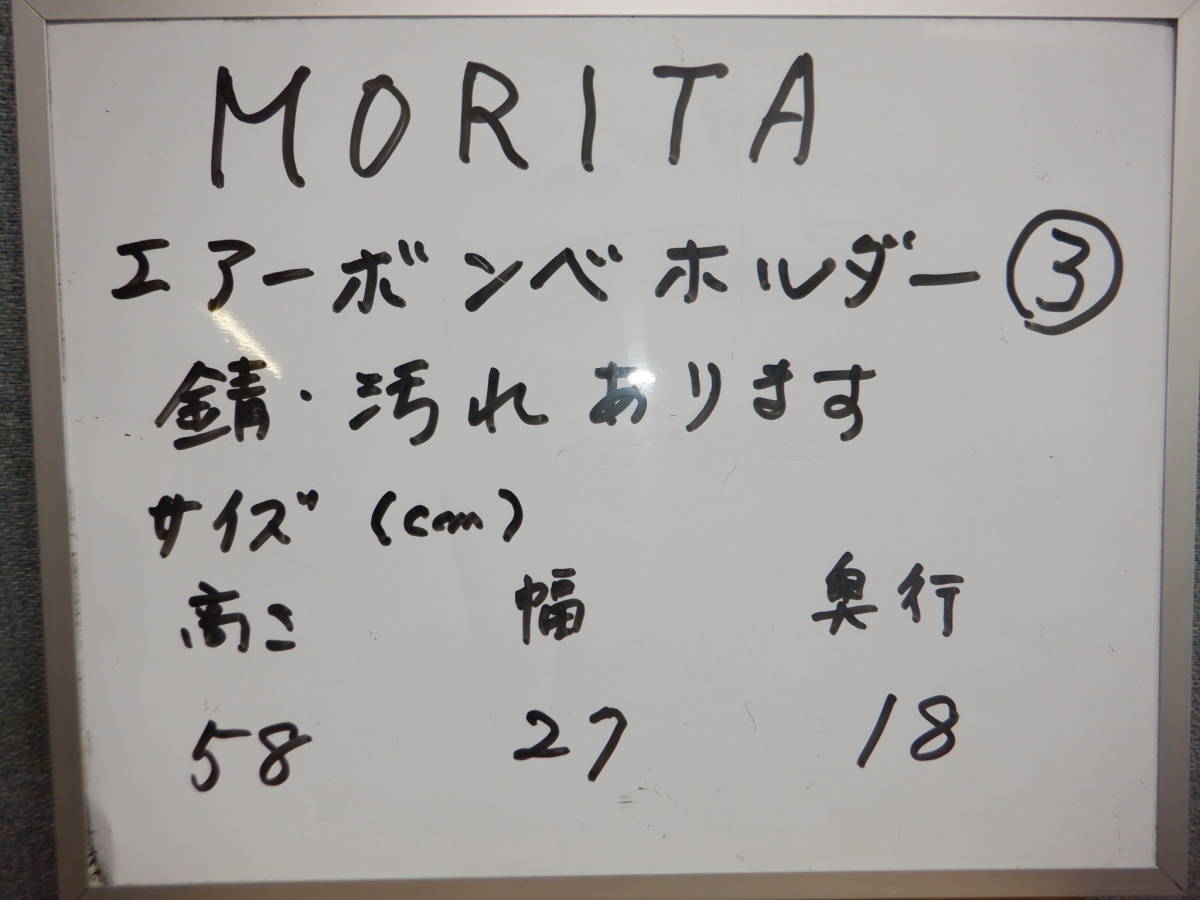 MORITA
エアーボンベホルダー ③
錆・汚れあります
サイズ (cm)
高さ 幅 奥行
58 27 18